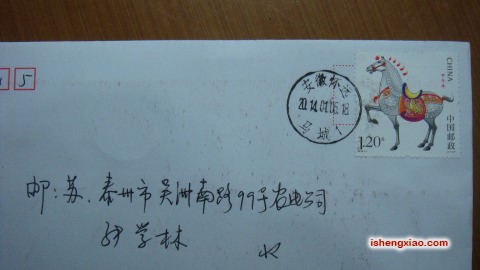 CHINA
中国邮政
1.20元
安徽怀远
2014.01.05.18
马城
5
邮:苏.泰州市吴洲南路99号省电公司
学林
收
ishengxiao.com